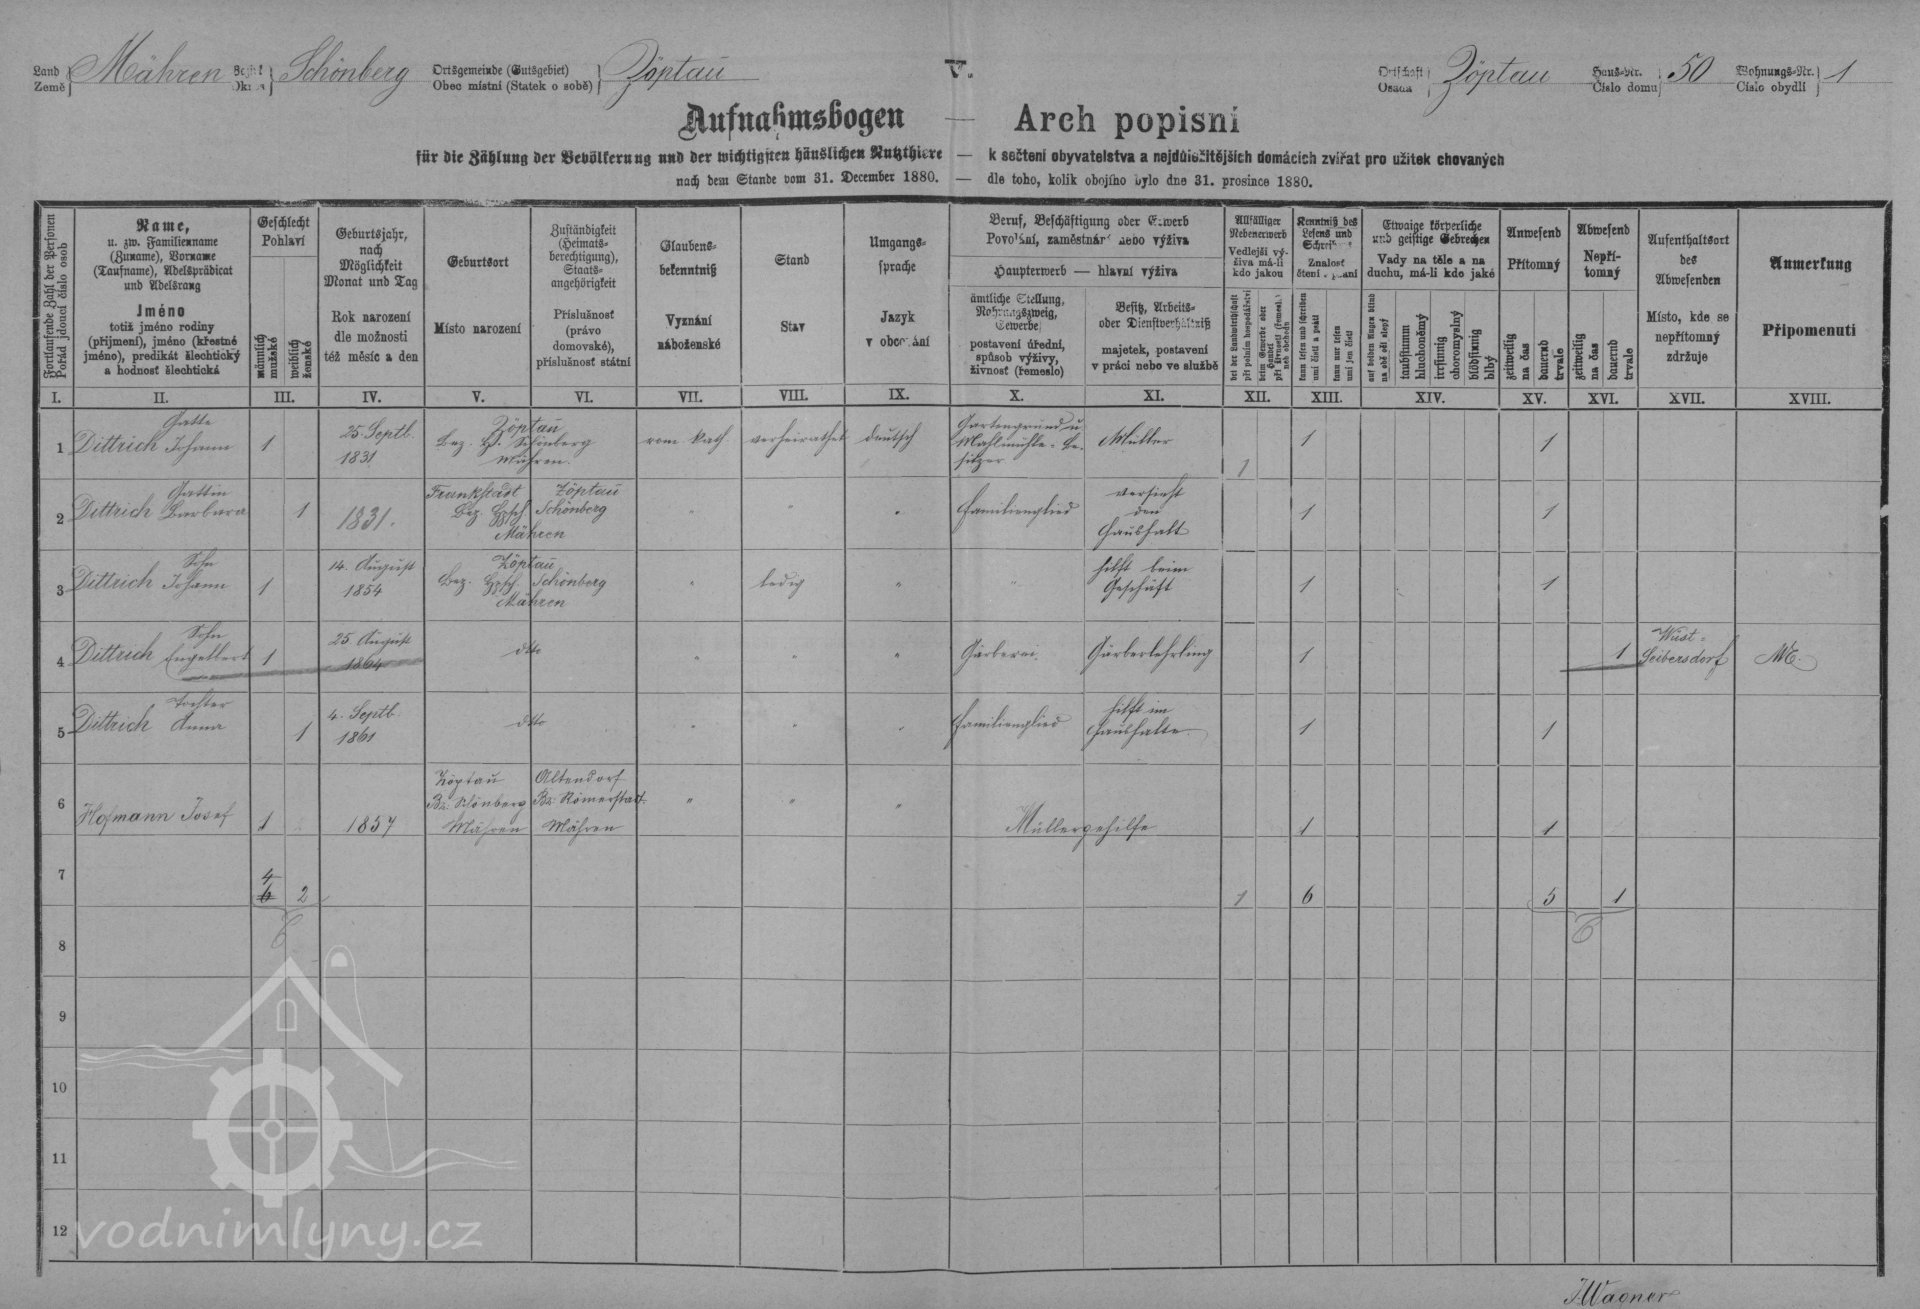 Land Země Mähren Bezirk Okres Schönberg Ortsgemeinde (Gutsgebiet) Obec místní (Statek o sobě) Zöptau V. Ortschaft Osada Zöptau Haus-Nr. Číslo domu 50 Wohnungs-Nr. Číslo obydlí 1
Aufnahmsbogen — Arch popisní
für die Zählung der Bevölkerung und der wichtigsten häuslichen Nutzthiere — k sečtení obyvatelstva a nejdůležitějších domácích zvířat pro užitek chovaných
nach dem Stande vom 31. December 1880. — dle toho, kolik obojího bylo dne 31. prosince 1880.
Fortlaufende Zahl der Personen
Pořád jdoucí číslo osob
Name,
u. zw. Familienname
(Zuname), Vorname
(Taufname), Adelsprädicat
und Adelsrang
Jméno
totiž jméno rodiny
(příjmení), jméno (křestné
jméno), predikát šlechtický
a hodnosť šlechtická
Geschlecht
Pohlaví
männlich
mužské
weiblich
ženské
Geburtsjahr,
nach
Möglichkeit
Monat und Tag
Rok narození
dle možnosti
též měsíc a den
Geburtsort
Místo narození
Zuständigkeit
(Heimats-
berechtigung),
Staats-
angehörigkeit
Příslušnosť
(právo
domovské),
příslušnosť státní
Glaubens-
bekenntniß
Vyznání
náboženské
Stand
Stav
Umgangs-
sprache
Jazyk
v obcování
Beruf, Beschäftigung oder Erwerb
Povolání, zaměstnání nebo výživa
Haupterwerb — hlavní výživa
ämtliche Stellung,
Nahrungszweig,
Gewerbe
postavení úřední,
spůsob výživy,
živnosť (řemeslo)
Besitz, Arbeits-
oder Dienstverhältniß
majetek, postavení
v práci nebo ve službě
Allfälliger
Nebenerwerb
Vedlejší vý-
živa má-li
kdo jakou
bei der Landwirthschaft
při polním hospodářství
beim Gewerbe oder
Handel
při živnosti (řemesl.)
neb obchodu
Kenntniß des
Lesens und
Schreibens
Znalosť
čtení a psaní
kann lesen und schreiben
umí čísti a psáti
kann nur lesen
umí jen čísti
Etwaige körperliche
und geistige Gebrechen
Vady na těle a na
duchu, má-li kdo jaké
auf beiden Augen blind
na obě oči slepý
taubstumm
hluchoněmý
irrsinnig
choromyslný
blödsinnig
blbý
Anwesend
Přítomný
zeitweilig
na čas
dauernd
trvale
Abwesend
Nepří-
tomný
zeitweilig
na čas
dauernd
trvale
Aufenthaltsort
des
Abwesenden
Místo, kde se
nepřítomný
zdržuje
Anmerkung
Připomenutí
I. II. III. IV. V. VI. VII. VIII. IX. X. XI. XII. XIII. XIV. XV. XVI. XVII. XVIII.
1 Gatte Dittrich Johann 1 25. Septb. 1831 Zöptau Bez. H. Schönberg Mähren. röm. kath. verheirathet deutsch Gartengrund u Mahlmühle-Be-sitzer Müller 1 1 1
2 Gattin Dittrich Barbara 1 1831. Frankstadt Zöptau Bez. Hpsch Schönberg Mähren " " " Familienglied versieht den Haushalt 1 1
3 Sohn Dittrich Johann 1 14. August 1854 Zöptau Bez. Hpsch. Schönberg Mähren " ledig " " hilft beim Geschäft 1 1
4 Sohn Dittrich Engelbert 1 25. August 1864 dto " " " Gärberei Gärberlehrling 1 1 Wüst-Seibersdorf
5 Tochter Dittrich Anna 1 4. Septb. 1861 dto " " " Familienglied hilft im Haushalte. 1 1
6 Hofmann Josef 1 1857 Zöptau Bz: Schönberg Mähren Altendorf Bz: Römerstadt Mähren " " " Müllergehilfe 1 1
7 4 6 2 1 6 5 1
8 6 6
9
10
11
12
vodnimlyny.cz
J.Wagner